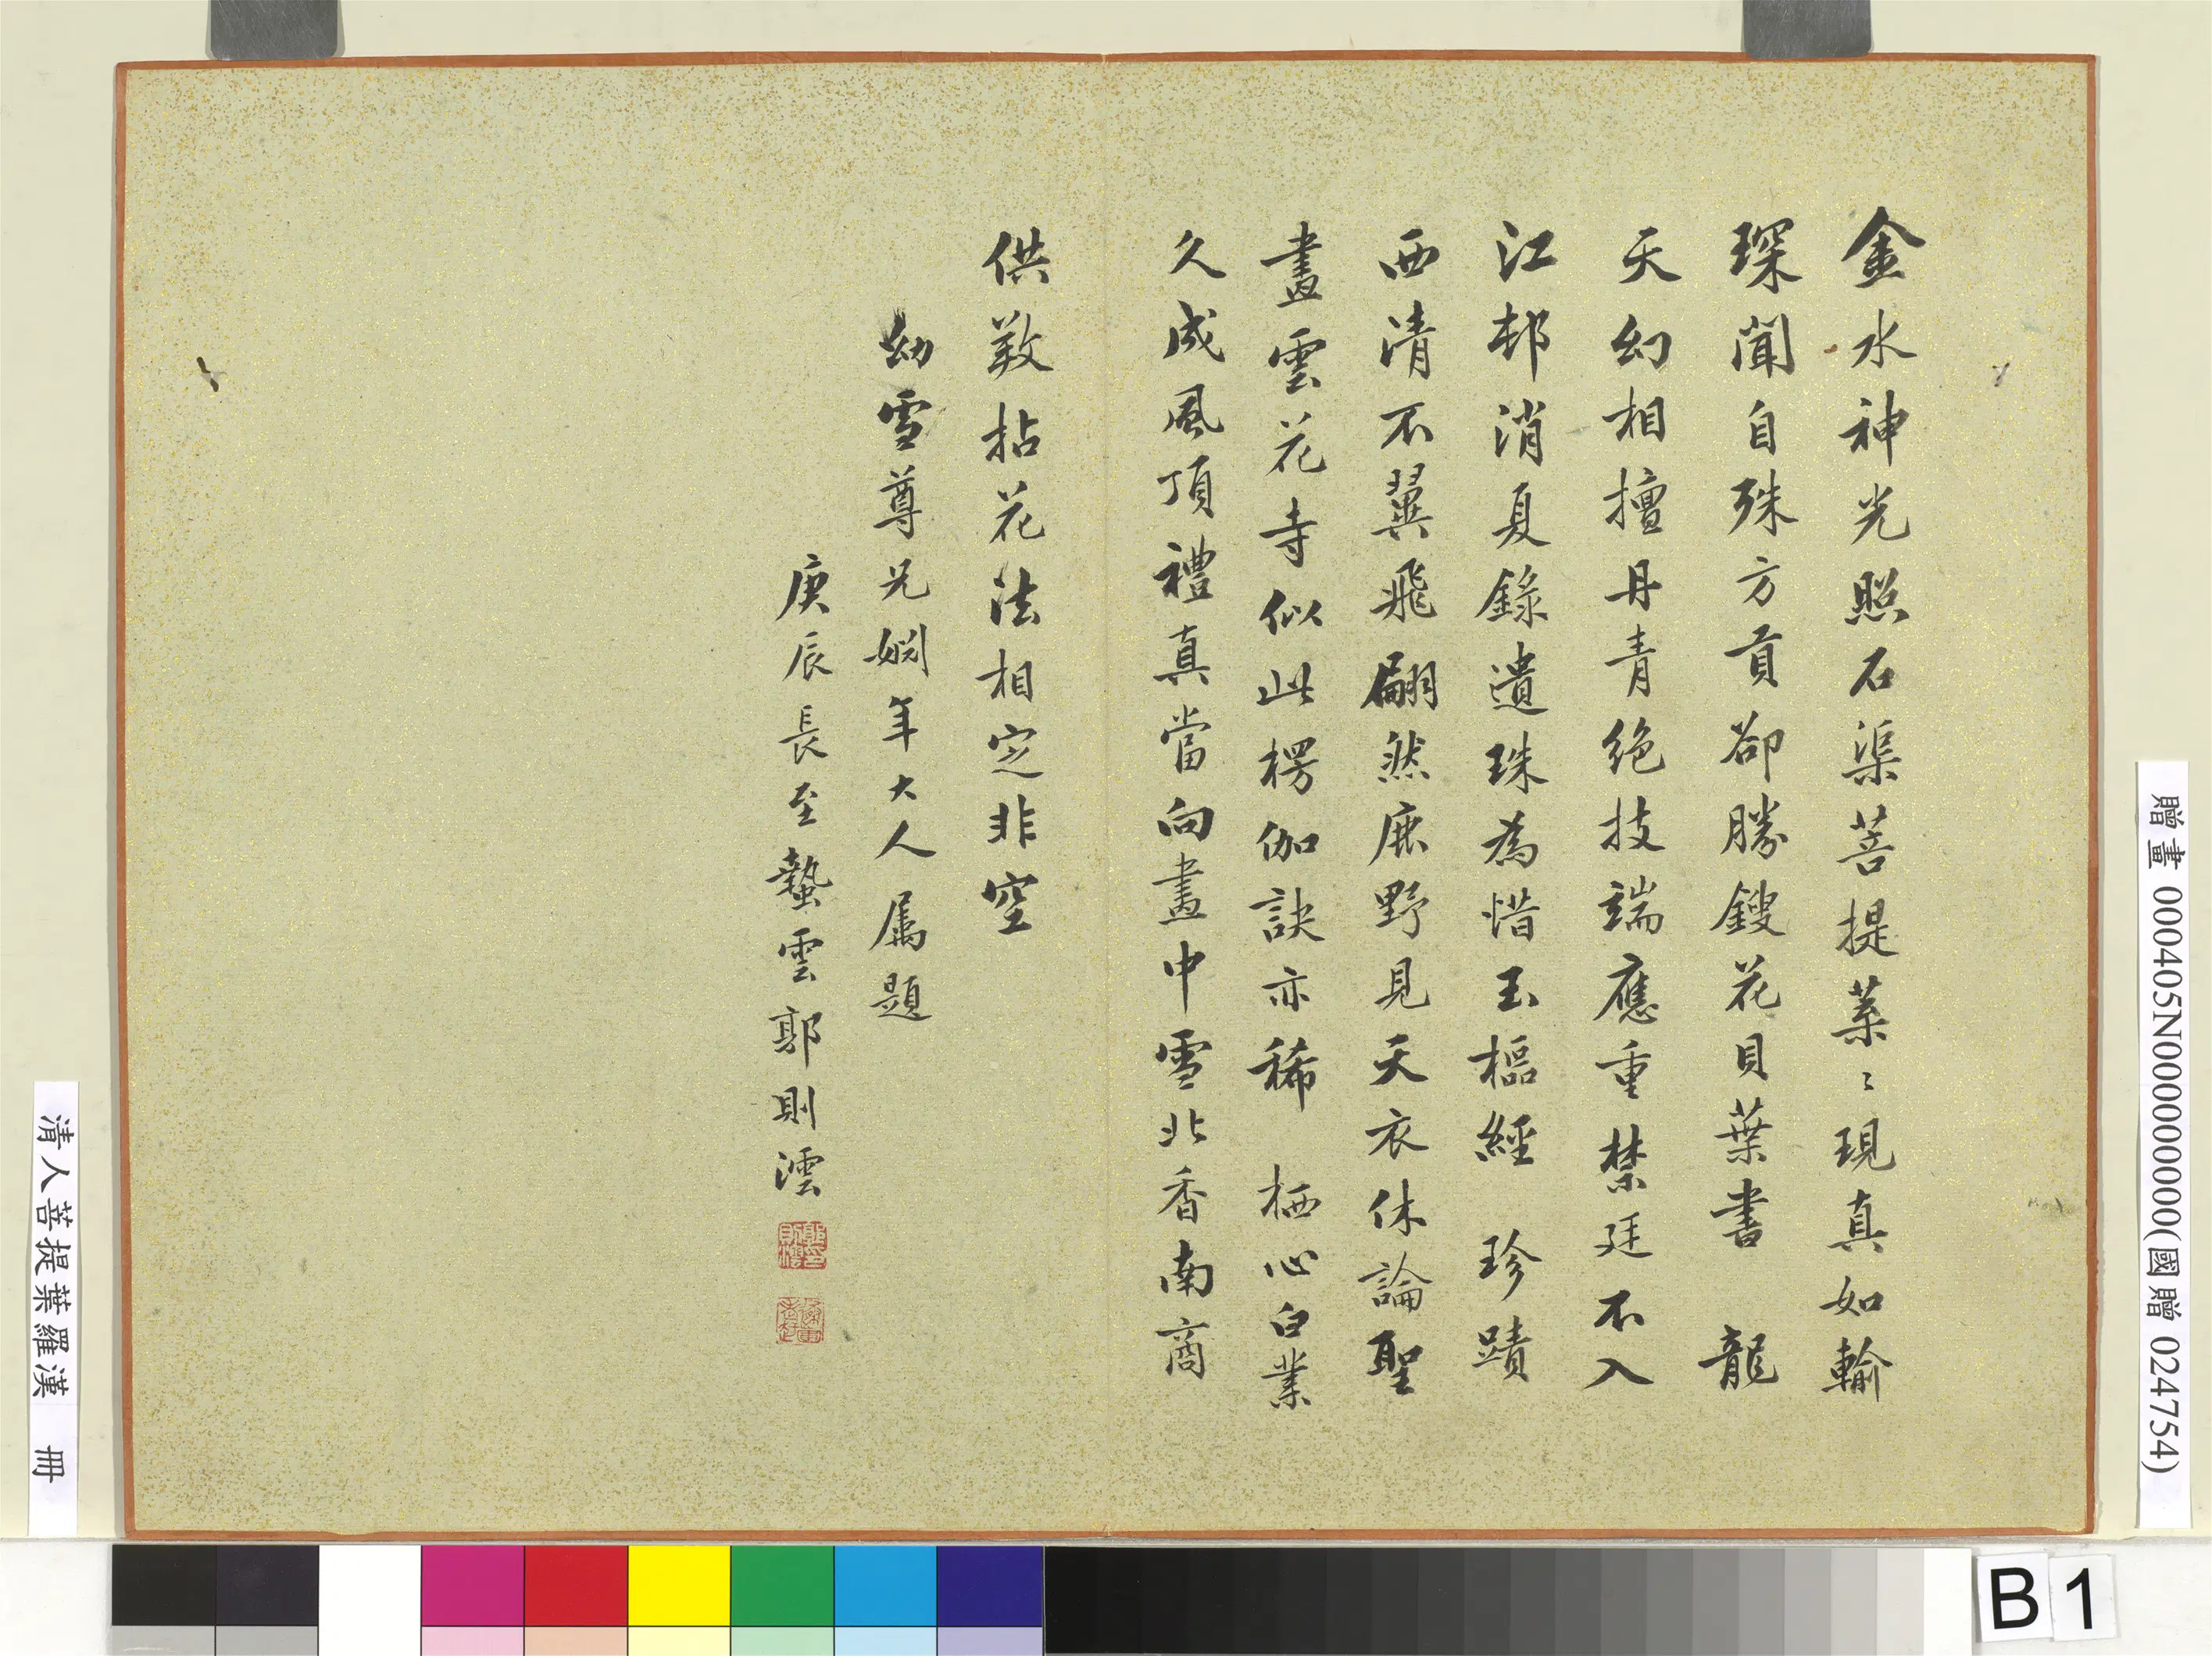 金水神光照石渠菩提葉〻現真如輸
琛聞自殊方貢卻勝鎪花貝葉書　龍
天幻相擅丹青絶技端應重禁廷不入
江邨消夏錄遺珠為惜玉樞經　珍蹟
西清不翼飛翩然鹿野見天衣休論聖
畫雲花寺似此楞伽訣亦稀　栖心白業
久成風頂禮真當向畫中雪北香南商
供養拈花法相定非空
幼雪尊兄姻年大人屬題
庚辰長至蟄雲郭則澐
贈畫 000405N000000000(國贈 024754)
清人菩提葉羅漢　冊
B1